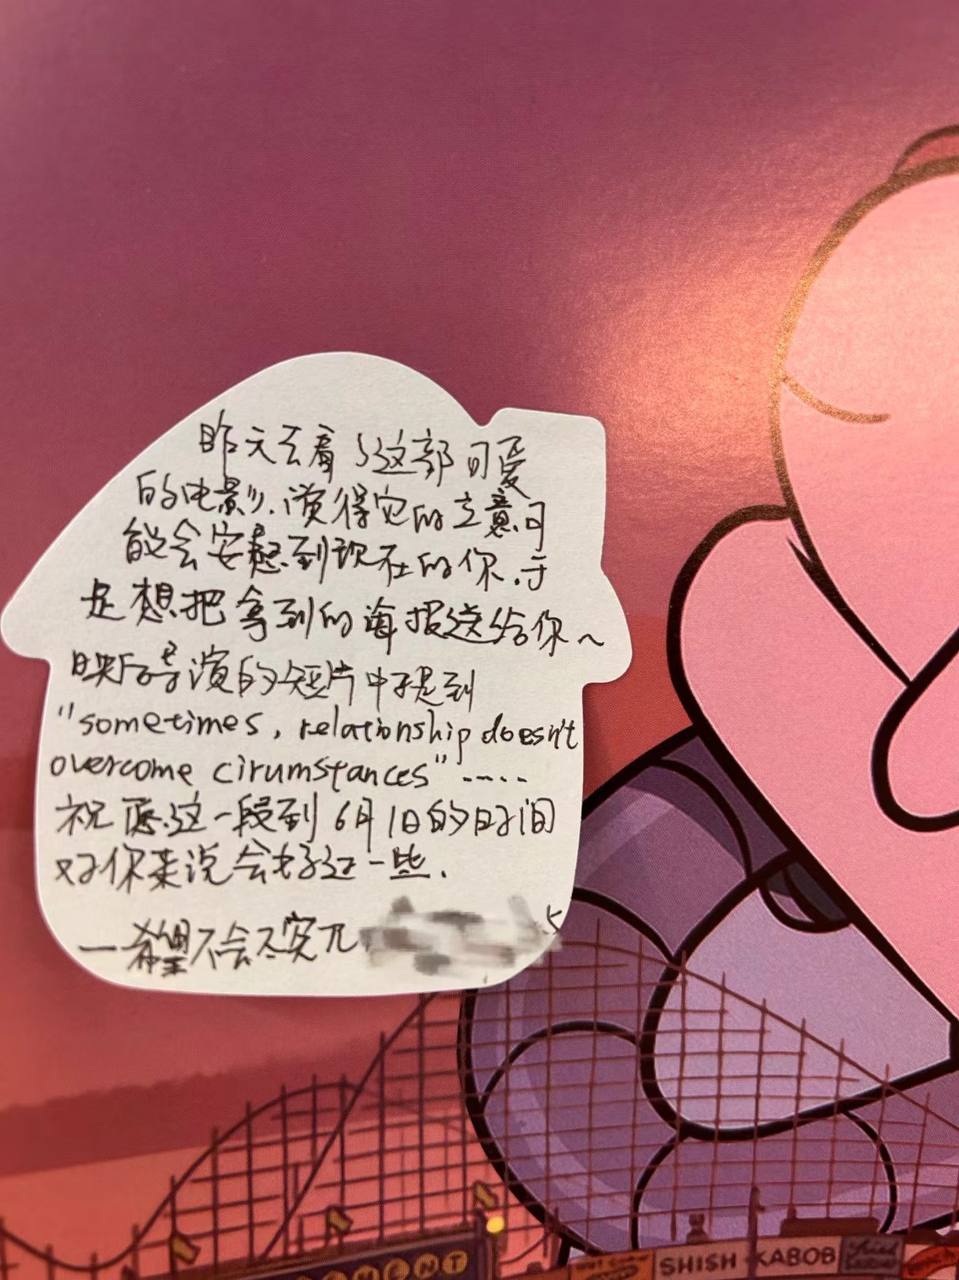 昨天去看了这部可爱
的电影，觉得它的立意可
能会安慰到现在的你，于
是想把拿到的海报送给你~
映后导演的短片中提到
"sometimes, relationship doesn't
overcome cirumstances" ……
祝愿这一段到6月1日的时间
对你来说会好过一些.
—希望不会太突兀
SHISH KABOB